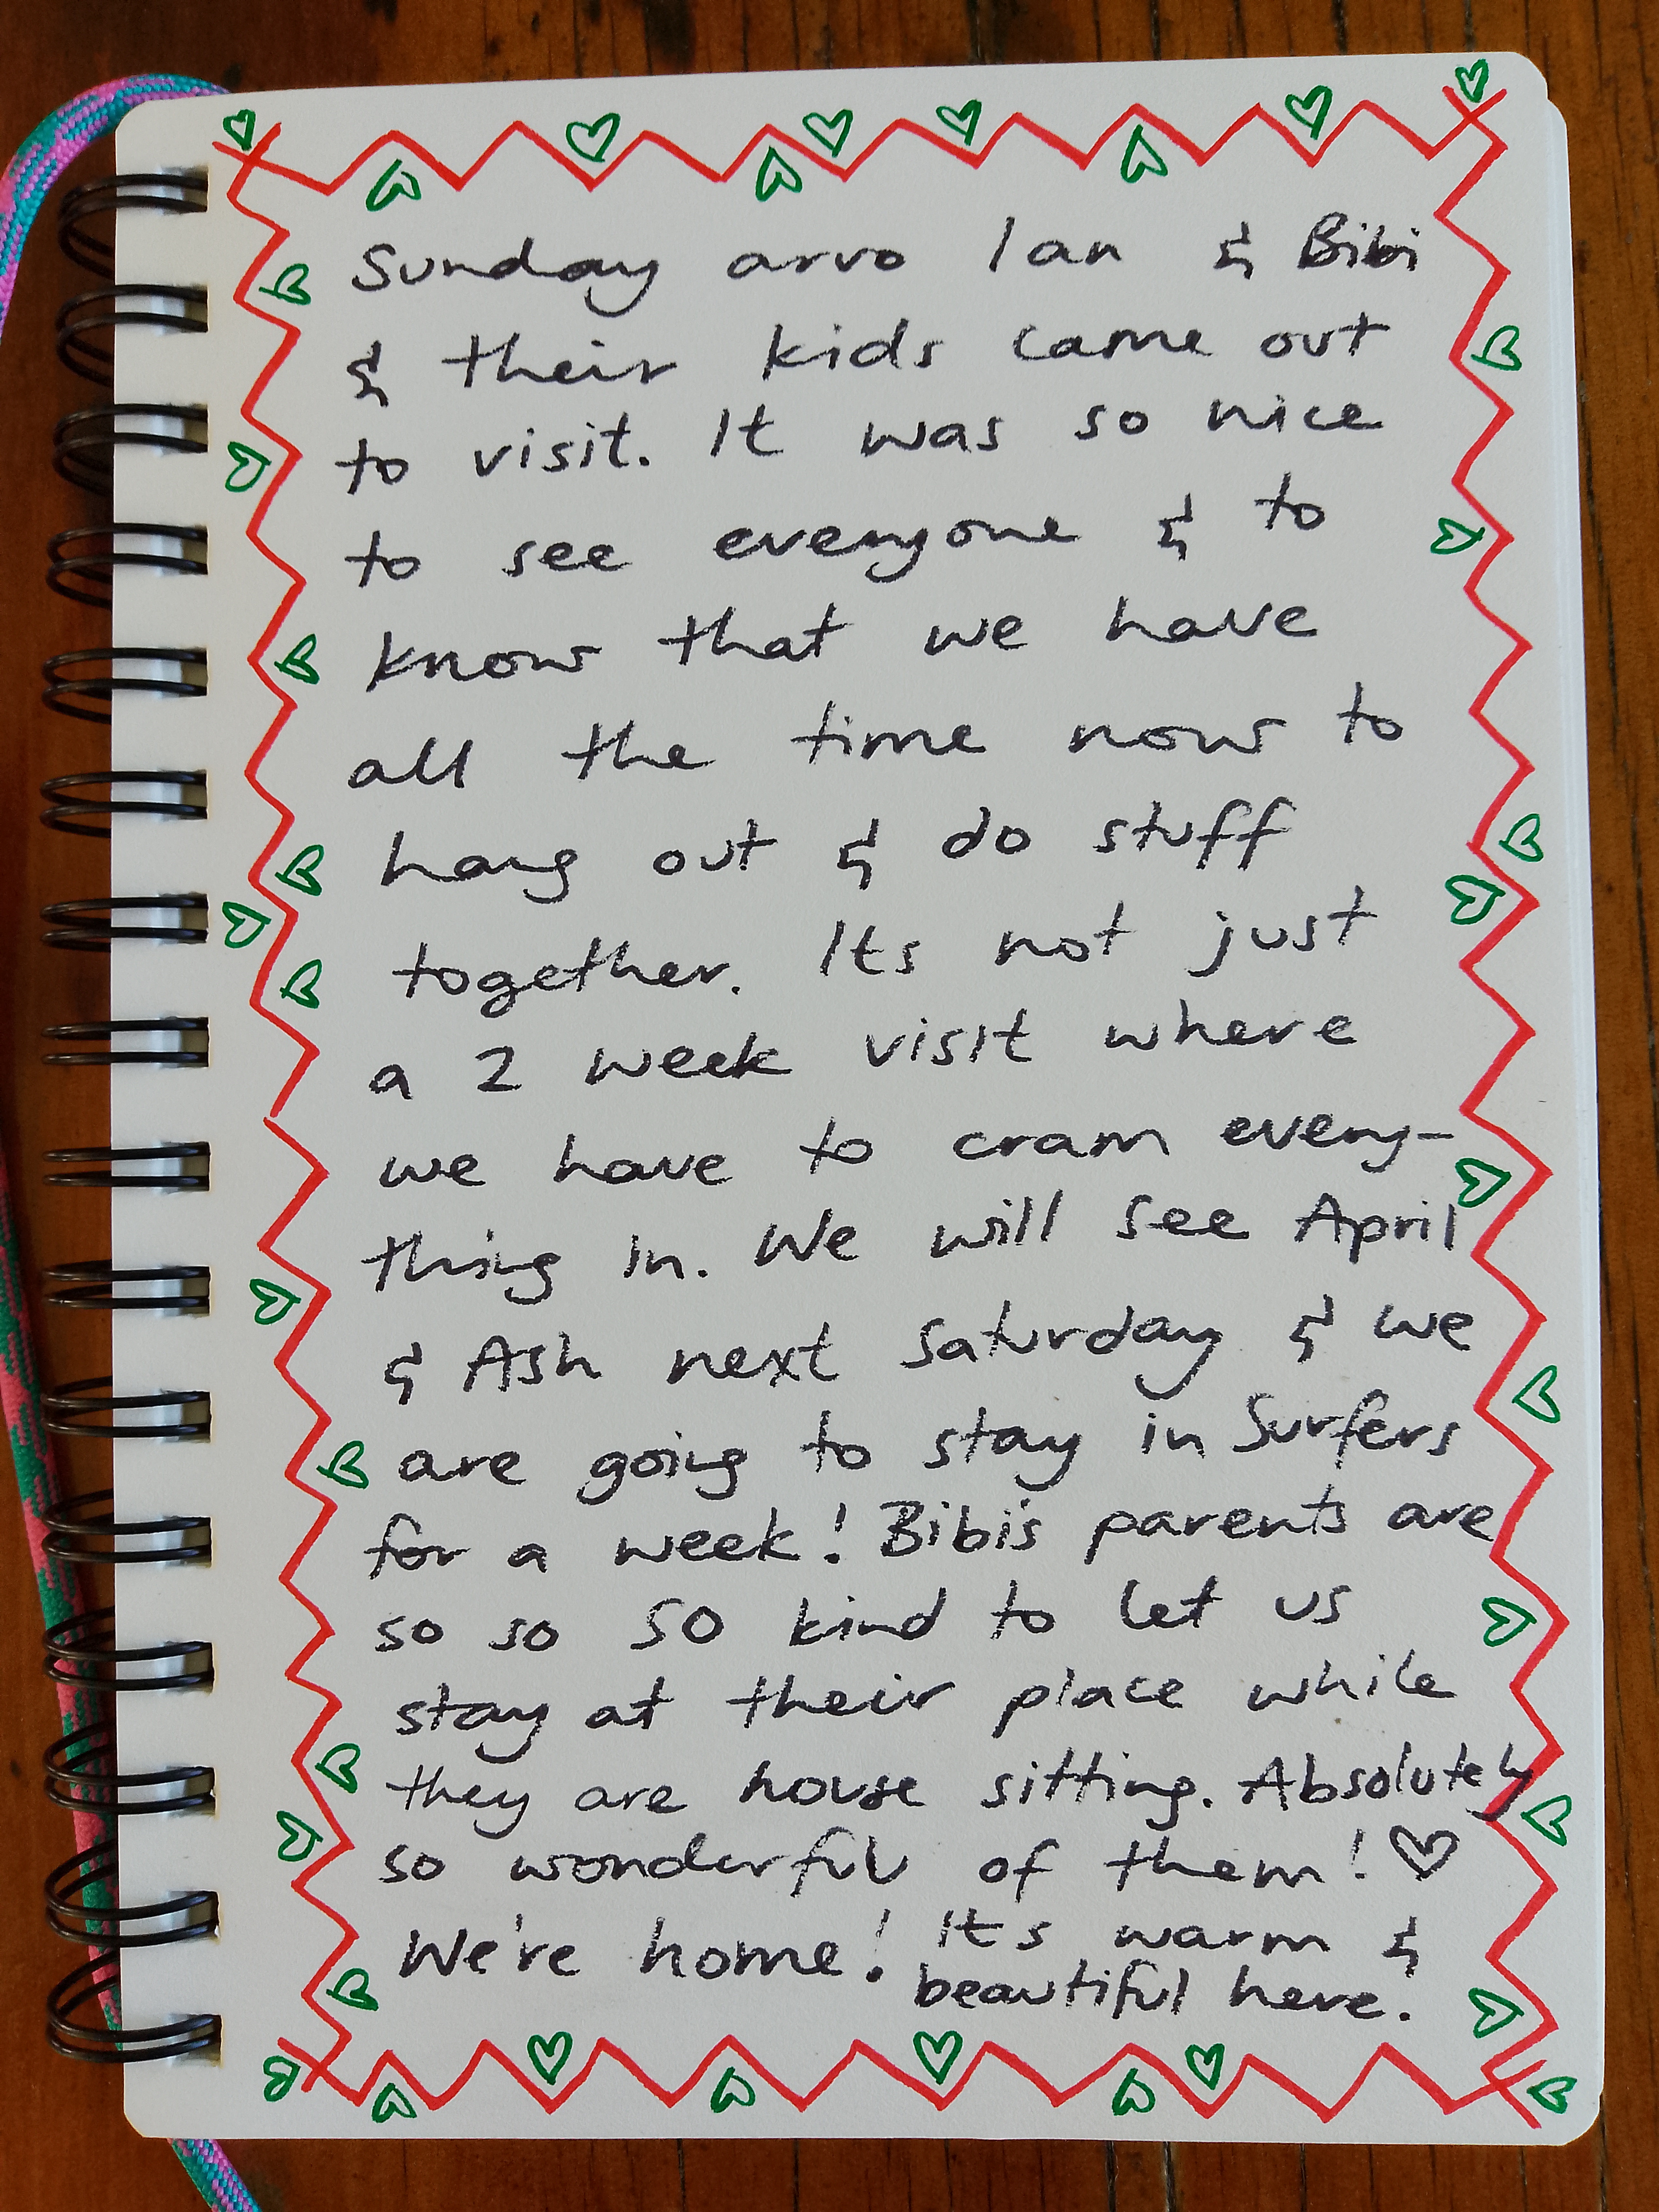 Sunday arvo Ian & Bibi
& their kids came out
to visit. It was so nice
to see everyone & to
know that we have
all the time now to
hang out & do stuff
together. Its not just
a 2 week visit where
we have to cram every-
thing in. We will see April
& Ash next Saturday & we
are going to stay in Surfers
for a week! Bibi's parents are
so so SO kind to let us
stay at their place while
they are house sitting. Absolutely
so wonderful of them! ♡
We're home! It's warm &
beautiful here.